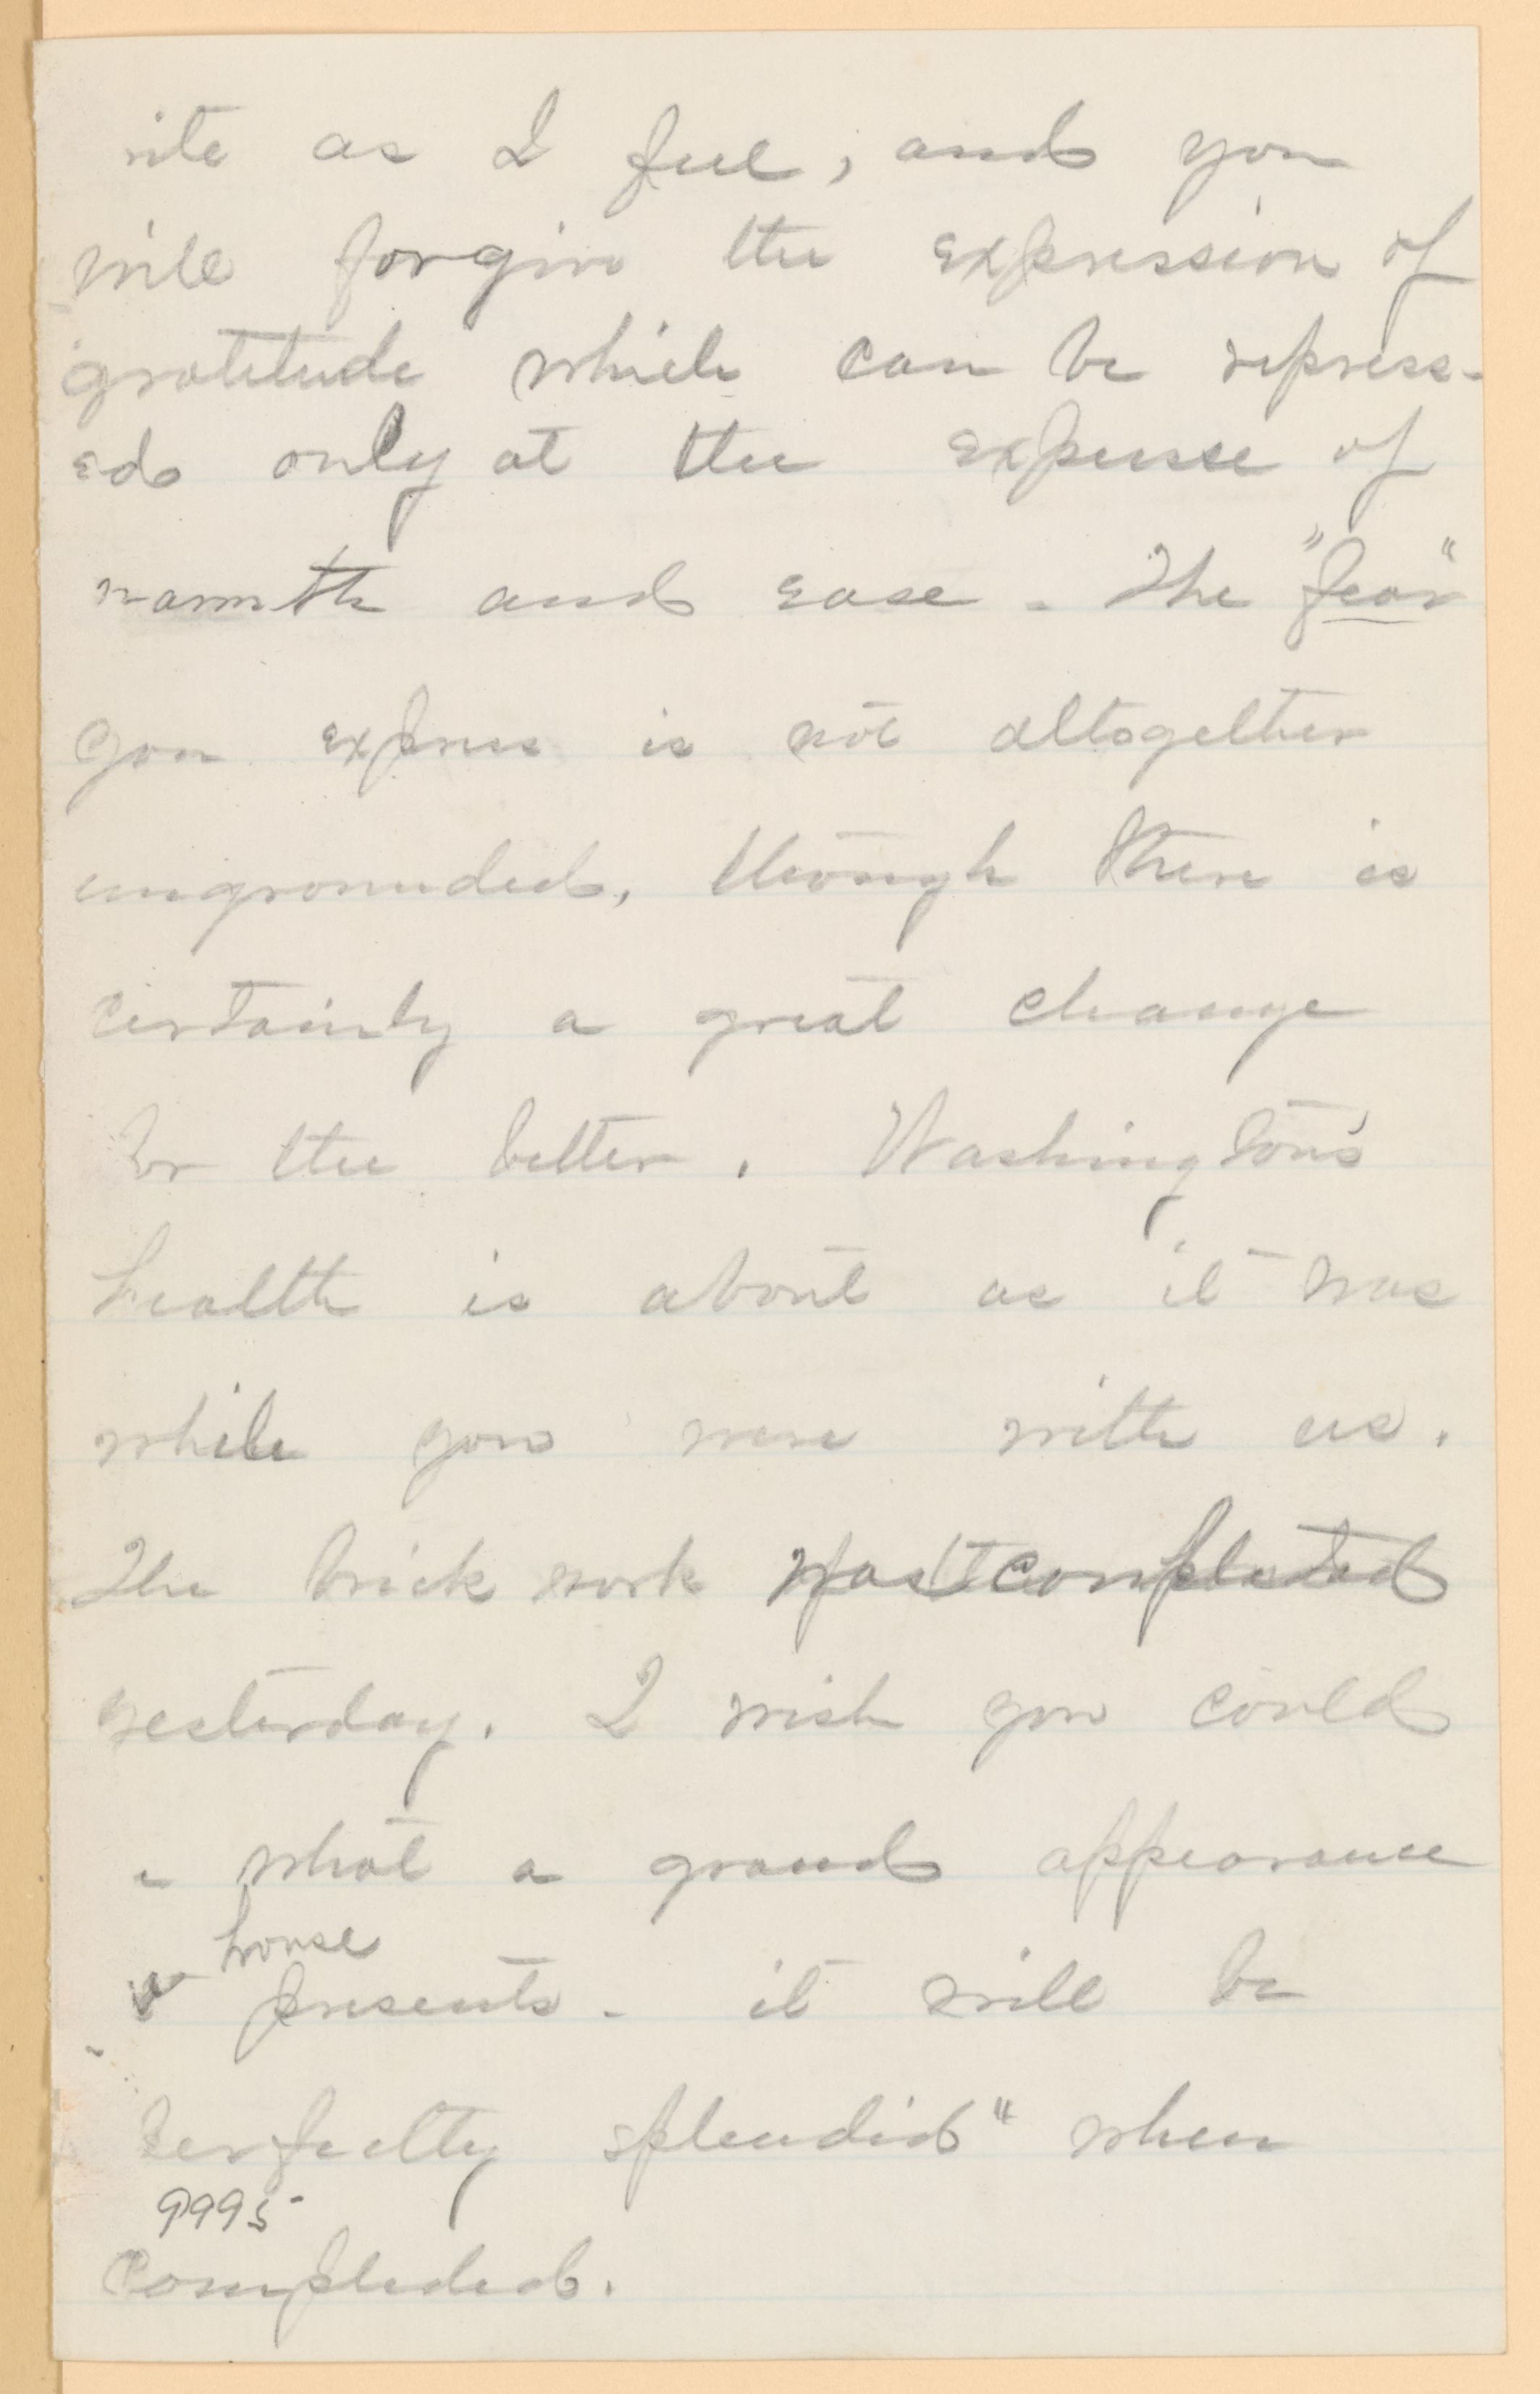 rite as I feel, and you
will forgive the expression of
gratitude which can be repress-
ed only at the expense of
warmth and ease - The "fear"
you express is not altogether
ungrounded, though there is
certainly a great change
for the better. Washington's
health is about as it was
while you were with us.
The brick work was completed
yesterday. I wish you could
what a grand appearance
house
presents - it will be
perfectly splendid" when
9995
Completed.